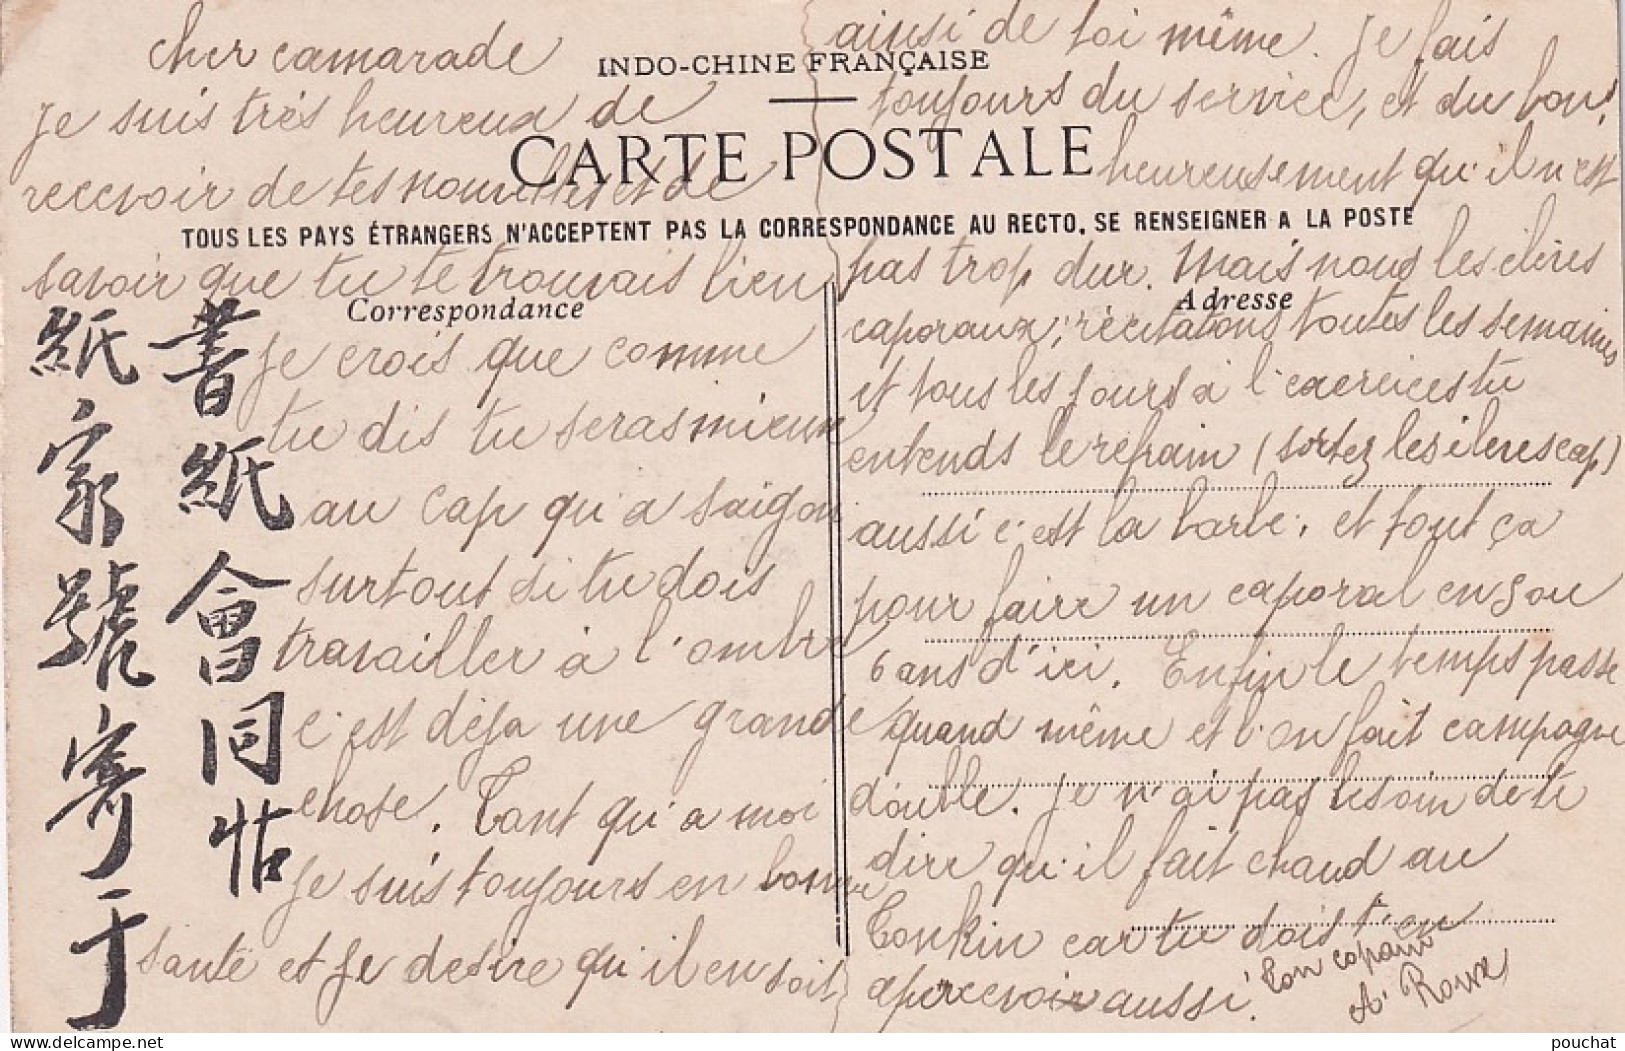 INDO-CHINE FRANÇAISE
CARTE POSTALE
TOUS LES PAYS ÉTRANGERS N'ACCEPTENT PAS LA CORRESPONDANCE AU RECTO. SE RENSEIGNER A LA POSTE
Correspondance
Adresse
cher camarade
je suis très heureux de
recevoir de tes nouvelles et de
savoir que tu te trouvais bien
je crois que comme
tu dis tu seras mieux
au cap qu'a saigon
surtout si tu dois
travailler à l'ombre
c'est déja une grande
chose. Tant qu'a moi
je suis toujours en bonne
santé et je desire qu'il en soit
ainsi de toi même. je fais
toujours du service, et du bon!
heureusement qu'il n'est
pas trop dur. Mais nous les élèves
caporaux, récitations toutes les semaines
et tous les jours à l'exercices tu
entends le refrain (sortez les eleves cap)
aussi c'est la barbe, et tout ça
pour faire un caporal en 5 ou
6 ans d'ici. Enfin le temps passe
quand même et l'on fait campagne
double. je n'ai pas besoin de te
dire qu'il fait chaud au
Tonkin car tu dois t'en
apercevoir aussi.
Ton copain
A. Roux
書紙會同帖
紙家號寄于
pouchat